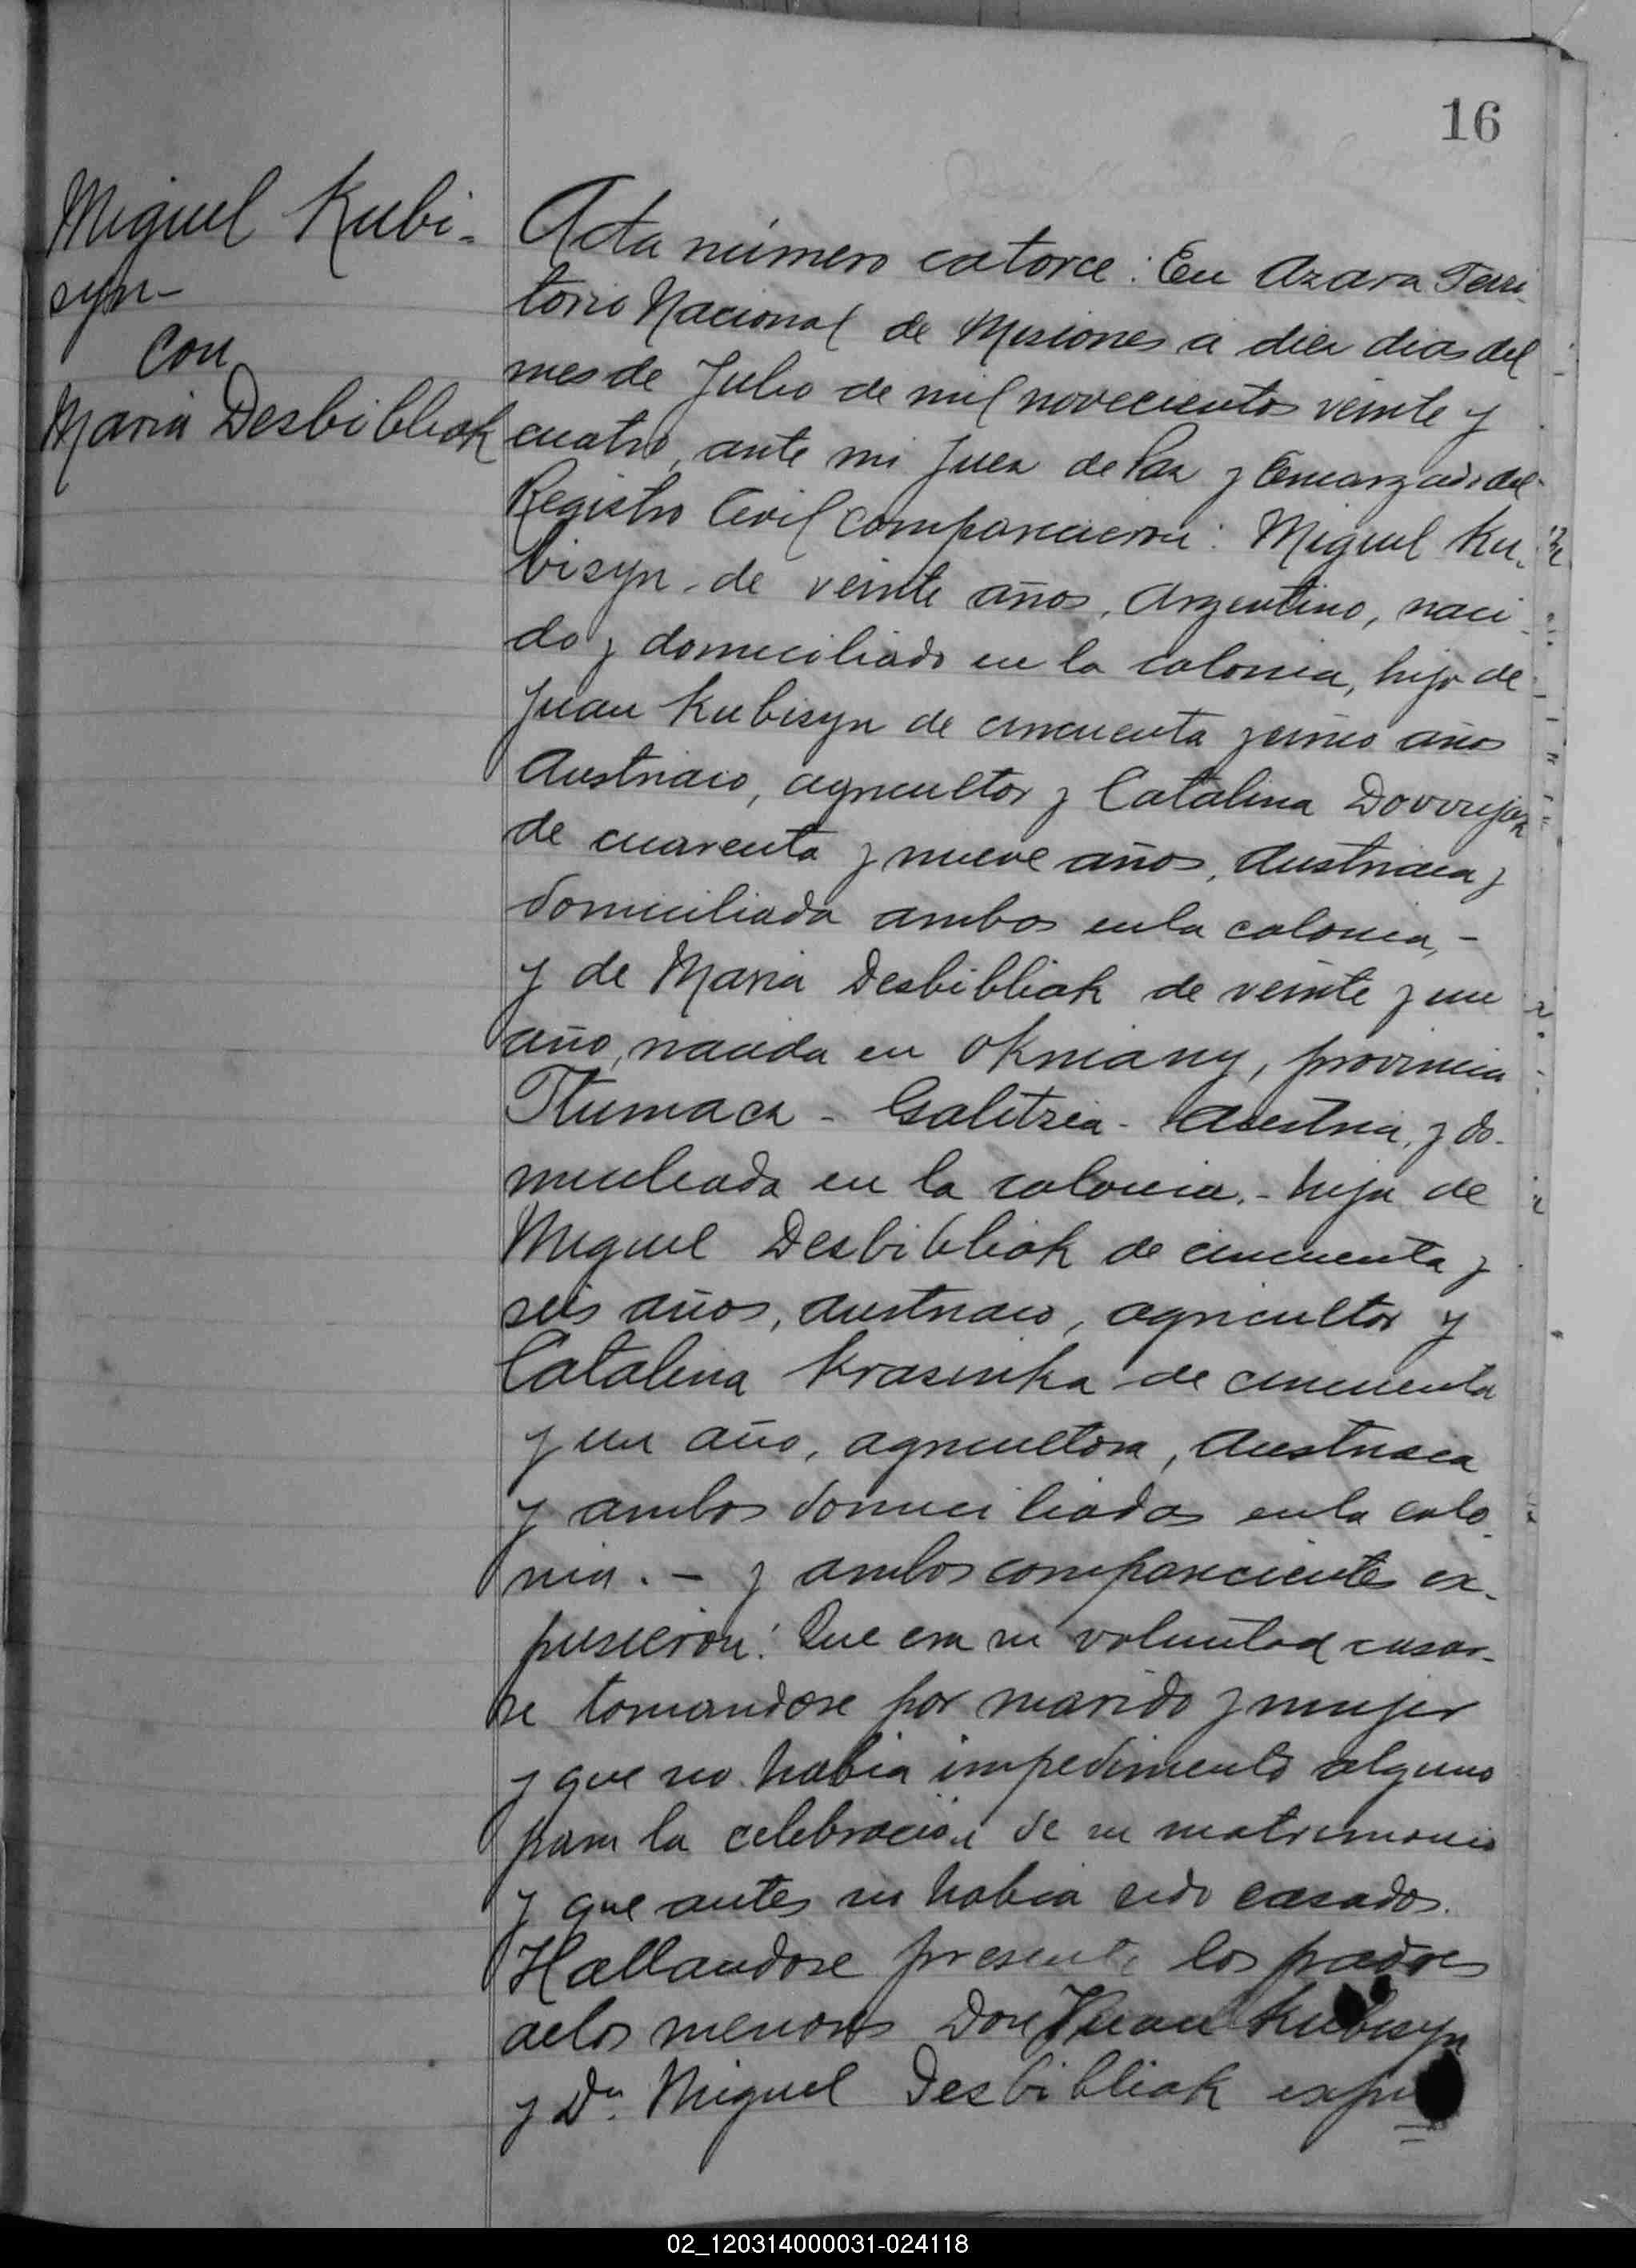 16
Miguel Kubi-
syn-
con
Maria Desbibliak
Acta número catorce: En Azara Terri-
torio Nacional de Misiones a diez dias del
mes de Julio de mil novecientos veinte y
cuatro, ante mi Juez de Paz y Encargado del
Registro Civil comparecieron: Miguel Ku-
bisyn de veinte años, Argentino, naci-
do y domiciliado en la colonia, hijo de
Juan Kubisyn de cincuenta y cinco años
Austriaco, agricultor y Catalina
de cuarenta y nueve años, Austriaca y
domiciliada ambos en la colonia, -
y de Maria Desbibliak de veinte y un
año, nacida en Okniany, provincia
Tlumacz - Galitzia - Austria, y do-
miciliada en la colonia. - hija de
Miguel Desbibliak de cincuenta y
seis años, austriaco, agricultor y
Catalina Krasinka de cincuenta
y un año, agricultora, Austriaca
y ambos domiciliados en la colo-
nia. - y ambos comparecientes ex-
pusieron: Que era su voluntad casar-
se tomandose por marido y mujer
y que no habia impedimento alguno
para la celebración de su matrimonio
y que antes no habia sido casados.
Hallandose presente los padres
de los menores Don Juan Kubisyn
y Dn. Miguel Desbibliak expu
02_120314000031-024118